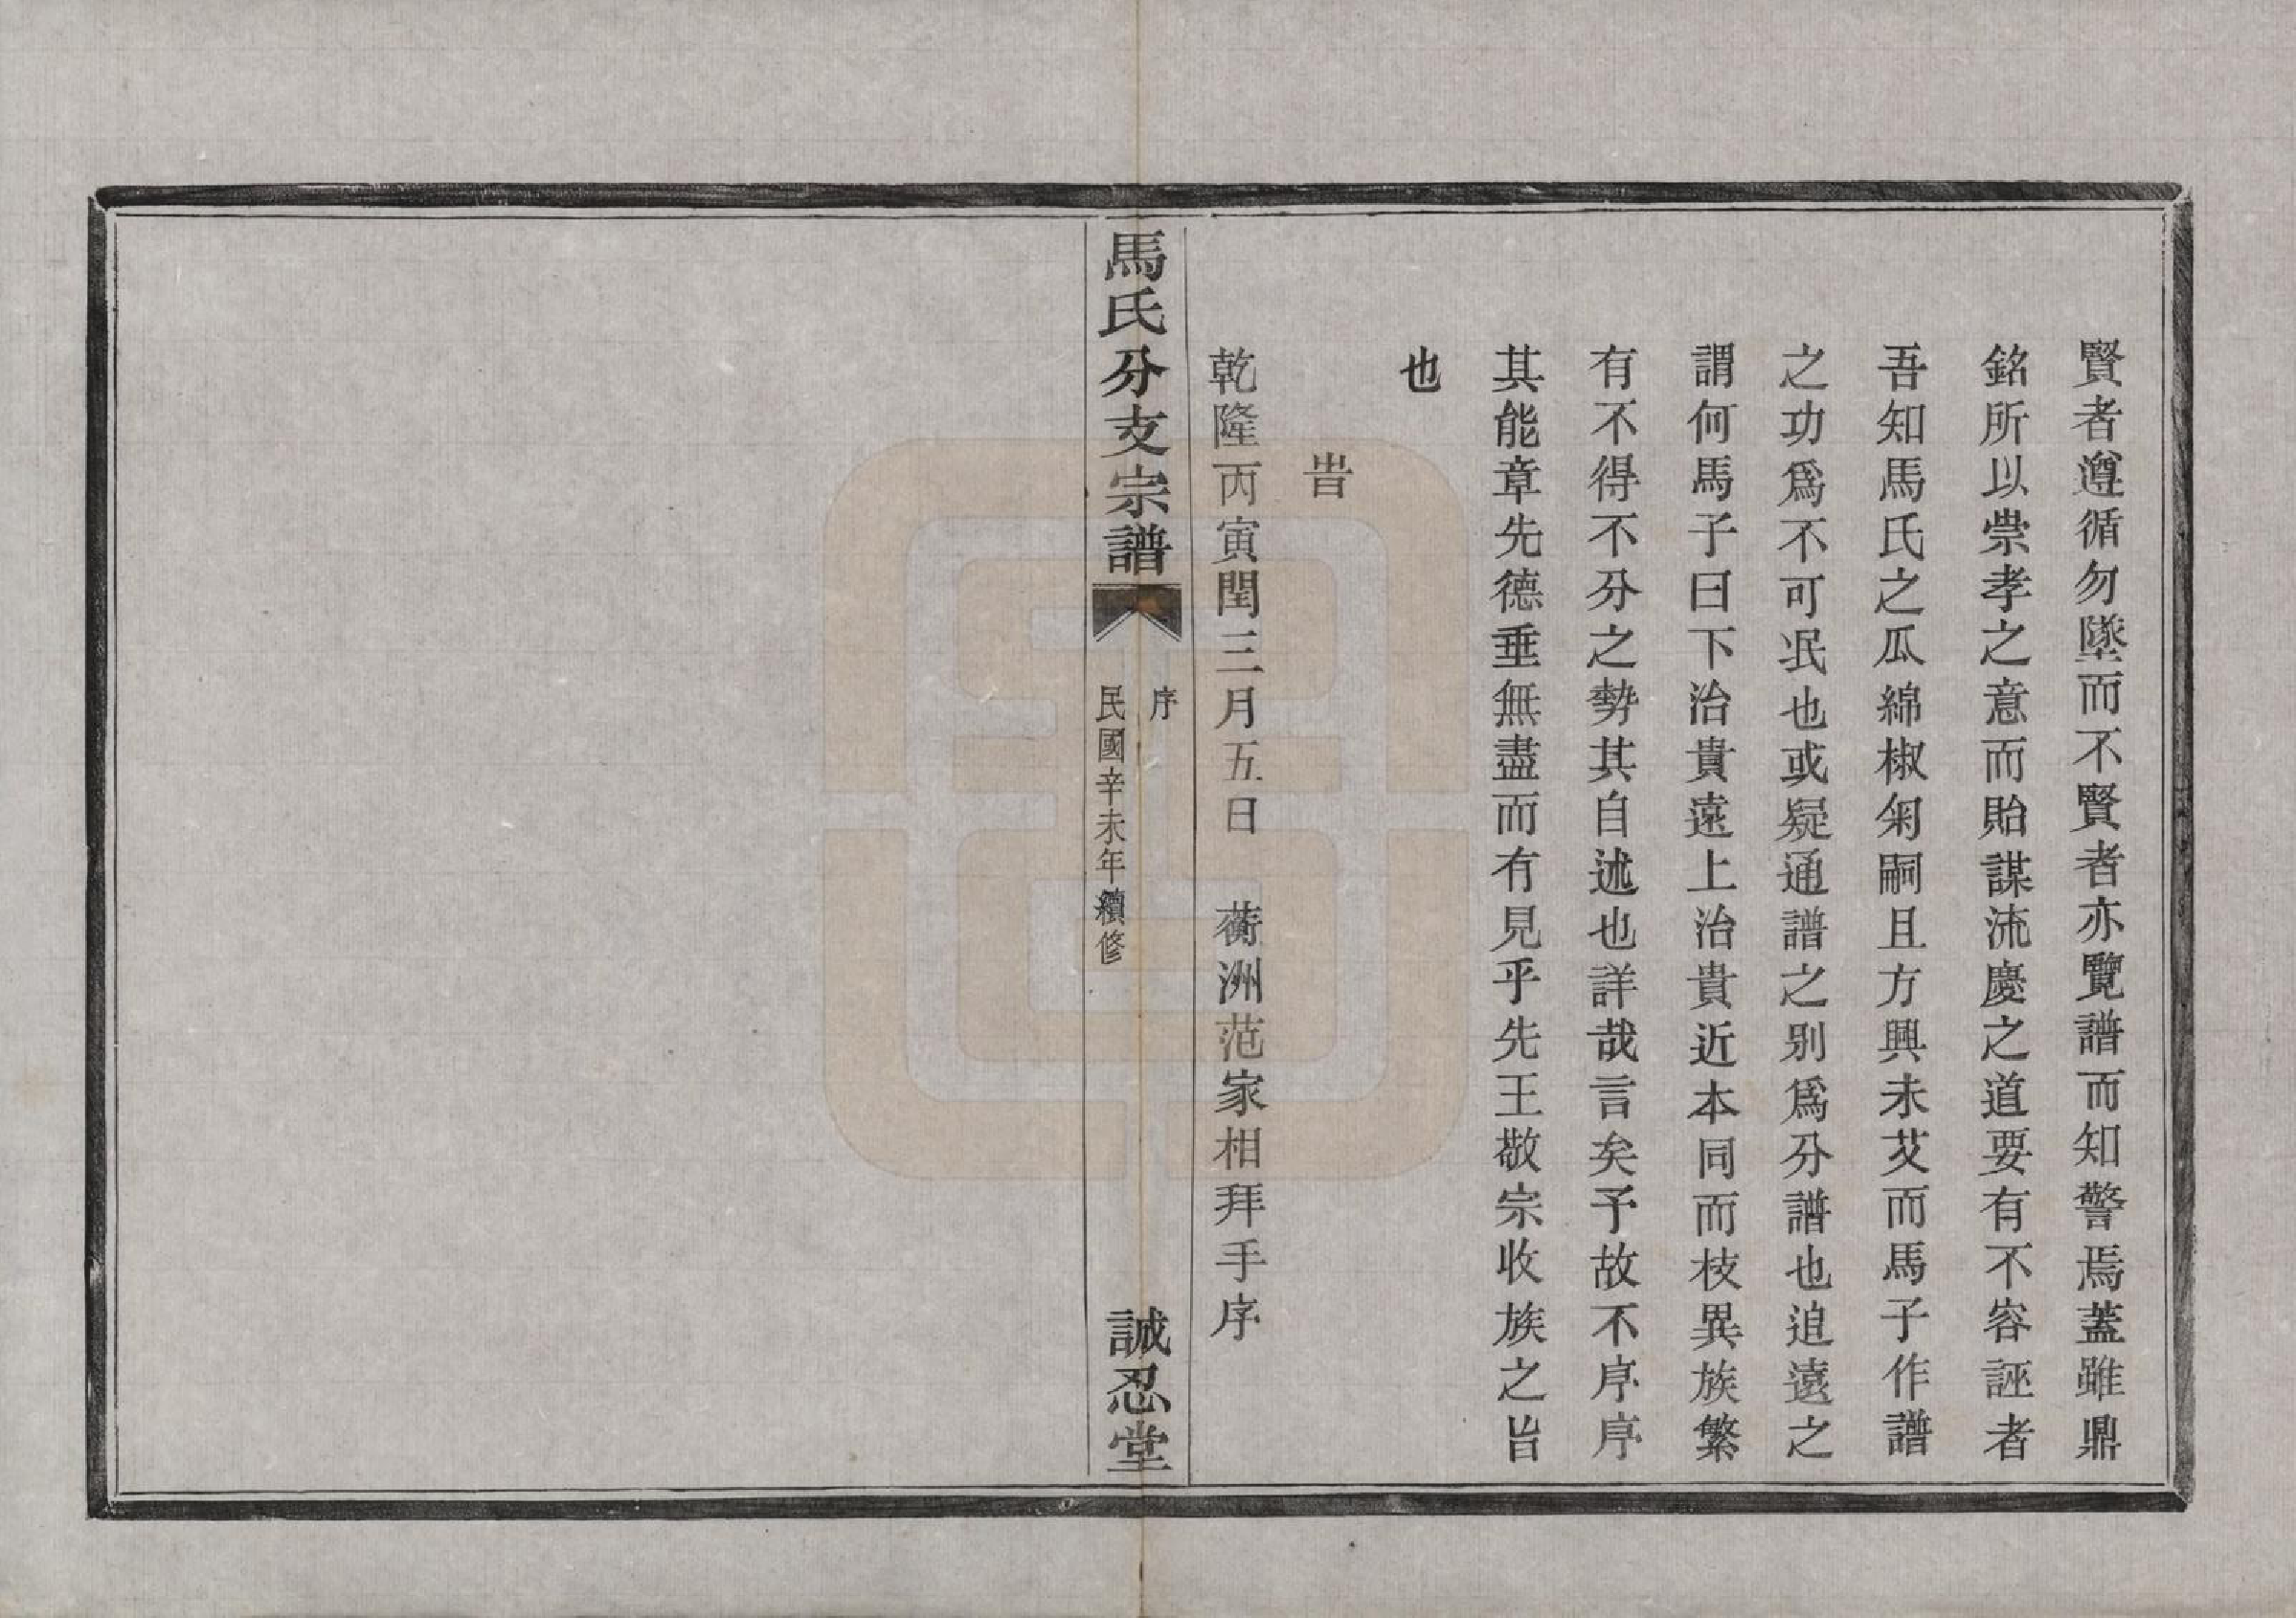 賢者遵循勿墜而不賢者亦覽譜而知警焉蓋雖鼎
銘所以崇孝之意而貽謀流慶之道要有不容誣者
吾知馬氏之瓜綿椒匊嗣且方興未艾而馬子作譜
之功爲不可泯也或疑通譜之别爲分譜也迫遠之
謂何馬子曰下治貴遠上治貴近本同而枝異族繁
有不得不分之勢其自述也詳哉言矣予故不序序
其能章先德垂無盡而有見乎先王敬宗收族之旨
也
旹
乾隆丙寅閏三月五日　蘅洲范家相拜手序
馬氏分支宗譜
序
民國辛未年續修
誠忍堂